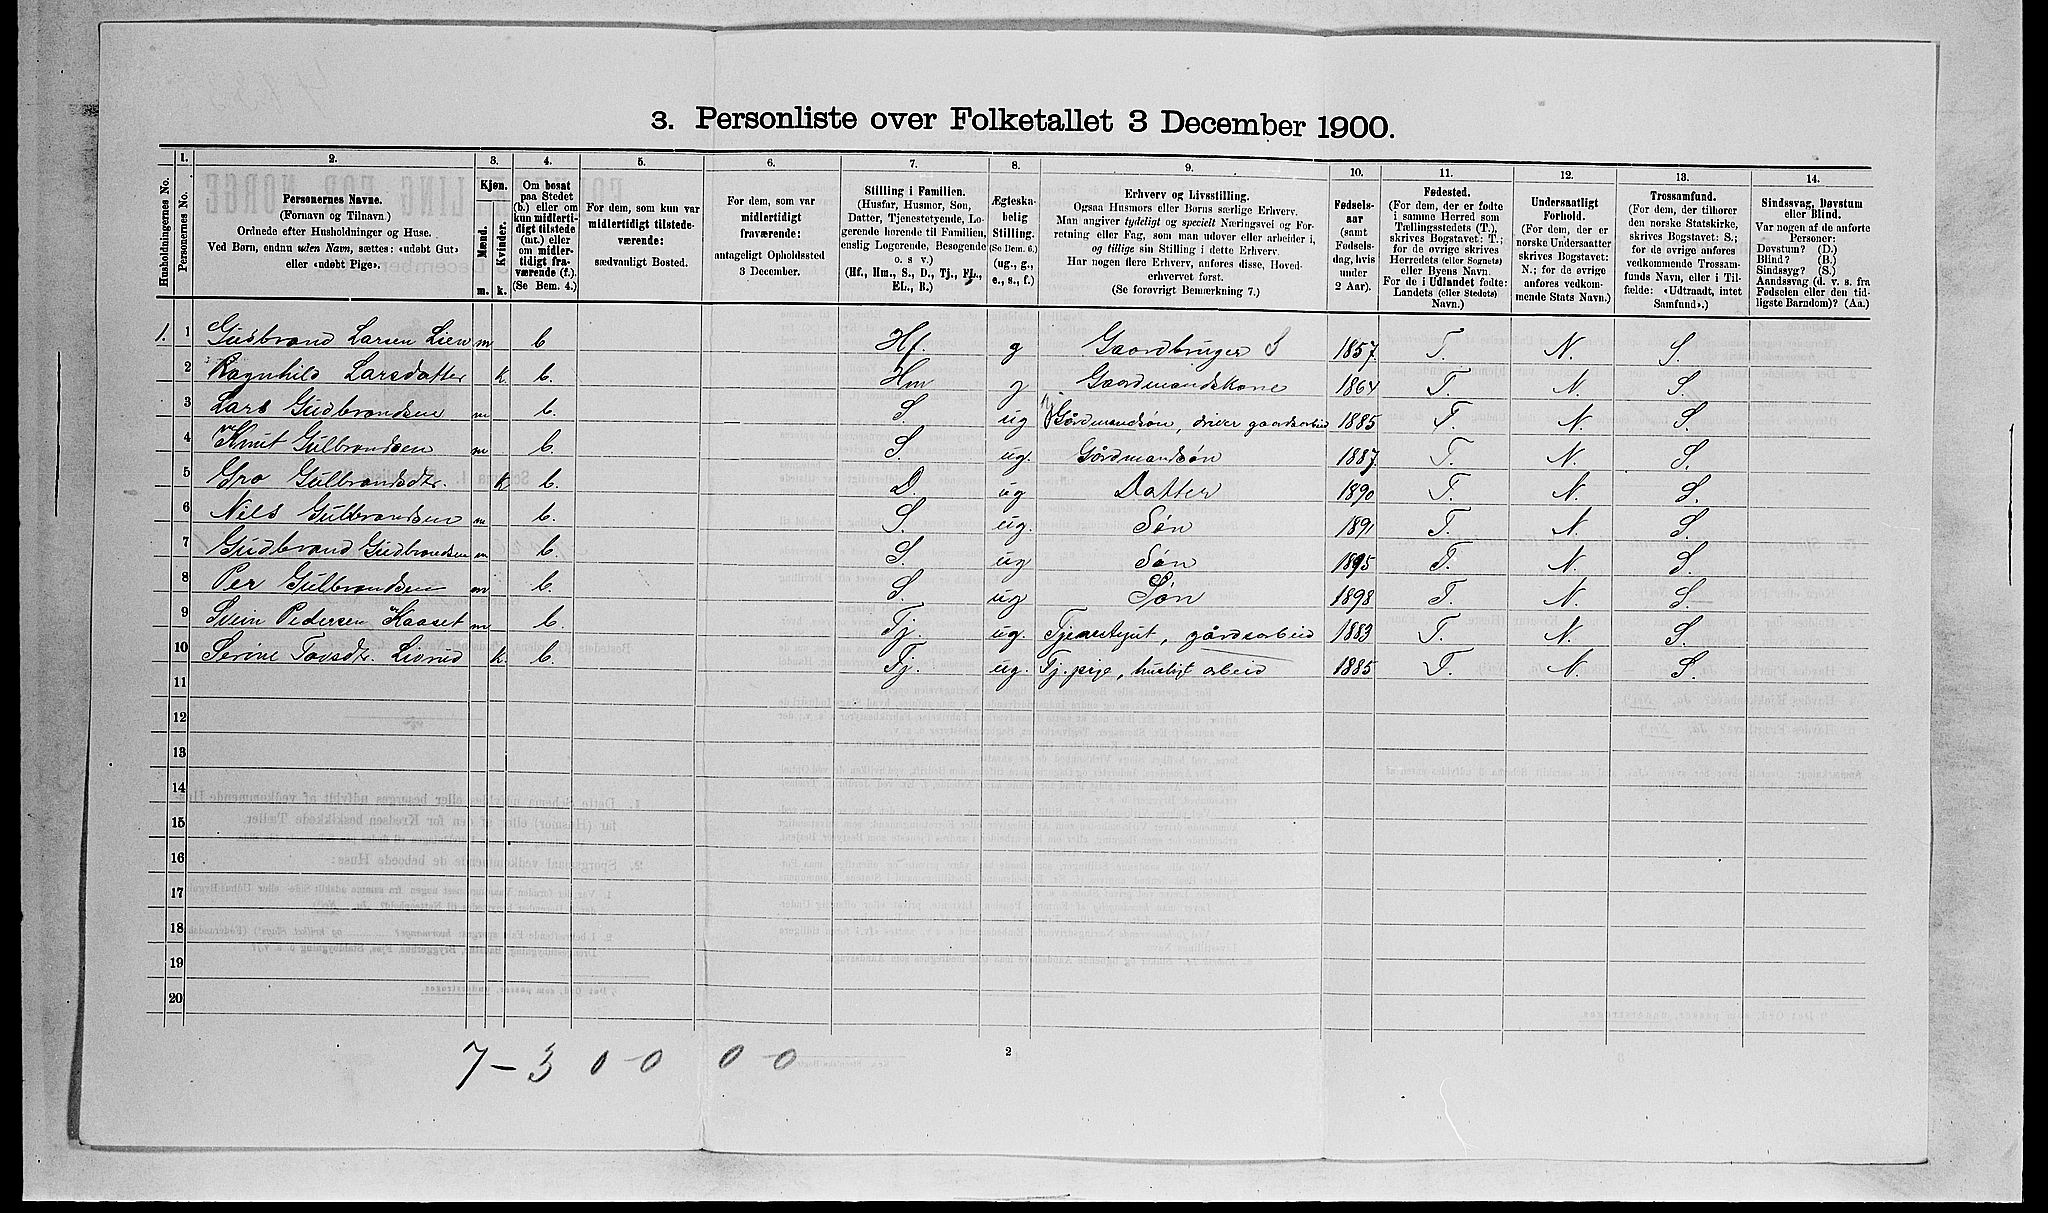 3. Personliste over Folketallet 3 December 1900.
1. 2. 3. 4. 5. 6. 7. 8. 9. 10. 11. 12. 13. 14.
Husholdningernes No.
Personernes No.
Personernes Navne.
(Fornavn og Tilnavn.)
Ordnede efter Husholdninger og Huse.
Ved Børn, endnu uden Navn, sættes: «udøbt Gut»
eller «udøbt Pige».
Kjøn.
Mænd.
Kvinder.
m. k.
Om bosat
paa Stedet
(b.) eller om
kun midlerti-
digt tilstede
(mt.) eller
om midler-
tidigt fra-
værende (f.).
(Se Bem. 4.)
For dem, som kun var
midlertidigt tilstede-
værende:
sædvanligt Bosted.
For dem, som var
midlertidigt
fraværende:
antageligt Opholdssted
3 December.
Stilling i Familien.
(Husfar, Husmor, Søn,
Datter, Tjenestetyende, Lo-
gerende hørende til Familien,
enslig Logerende, Besøgende
o. s. v.)
(Hf., Hm., S., D., Tj., FL.,
EL., B.)
Ægteska-
belig
Stilling.
(Se Bem. 6.)
(ug., g.,
e., s., f.)
Erhverv og Livsstilling.
Ogsaa Husmors eller Børns særlige Erhverv.
Man angiver tydeligt og specielt Næringsvei og For-
retning eller Fag, som man udøver eller arbeider i,
og tillige sin Stilling i dette Erhverv.
Har nogen flere Erhverv, anføres disse, Hoved-
erhvervet først.
(Se forøvrigt Bemærkning 7.)
Fødsels-
aar
(samt
Fødsels-
dag, hvis
under
2 Aar).
Fødested.
(For dem, der er fødte
i samme Herred som
Tællingsstedets (T.),
skrives Bogstavet: T.;
for de øvrige skrives
Herredets (eller Sognets)
eller Byens Navn.
For de i Udlandet fødte:
Landets (eller Stedets)
Navn.)
Undersaatligt
Forhold.
(For dem, der er
norske Undersaatter
skrives Bogstavet:
N.; for de øvrige
anføres vedkom-
mende Stats Navn.)
Trossamfund.
(For dem, der tilhører
den norske Statskirke,
skrives Bogstavet: S.;
for de øvrige anføres
vedkommende Trossam-
funds Navn, eller i Til-
fælde: «Udtraadt, intet
Samfund».)
Sindssvag, Døvstum
eller Blind.
Var nogen af de anførte
Personer:
Døvstum? (D.)
Blind? (B.)
Sindssyg? (S.)
Aandssvag (d. v. s. fra
Fødselen eller den tid-
ligste Barndom)? (Aa.)
1. 1 Gudbrand Larsen Lien m b Hf. g Gaardbruger S 1857. T. N. S.
2 Ragnhild Larsdatter k. b. Hm g Gaardmandskone 1864 T. N. S.
3 Lars Gudbrandsen m b. S. ug Gårdmandsøn, driver gaardsarbeid 1885 T. N. S.
4 Knut Gulbrandsen m b. S. ug. Gårdmandsøn 1887. T. N. S.
5 Gro Gulbrandsdtr. K b. D. ug Datter 1890 T. N. S.
6 Nils Gulbrandsen m b. S. ug. Søn 1891 T. N. S.
7 Gudbrand Gudbrandsen m b. S. ug Søn 1895 T. N. S.
8 Per Gulbrandsen m b. S ug Søn 1898 T. N. S.
9 Svein Pedersen Kaaset m b. Tj. ug. Tjenestegut, gårdsarbeid 1883 T. N. S.
10 Serine Tovsdtr. Liörud k. b. Tj. ug. Tj. pige, husligt arbeid 1885 T. N. S.
11
12
13
14
15
16
17
18
19
20
7 – 3 0 – 0 0 – 0
2